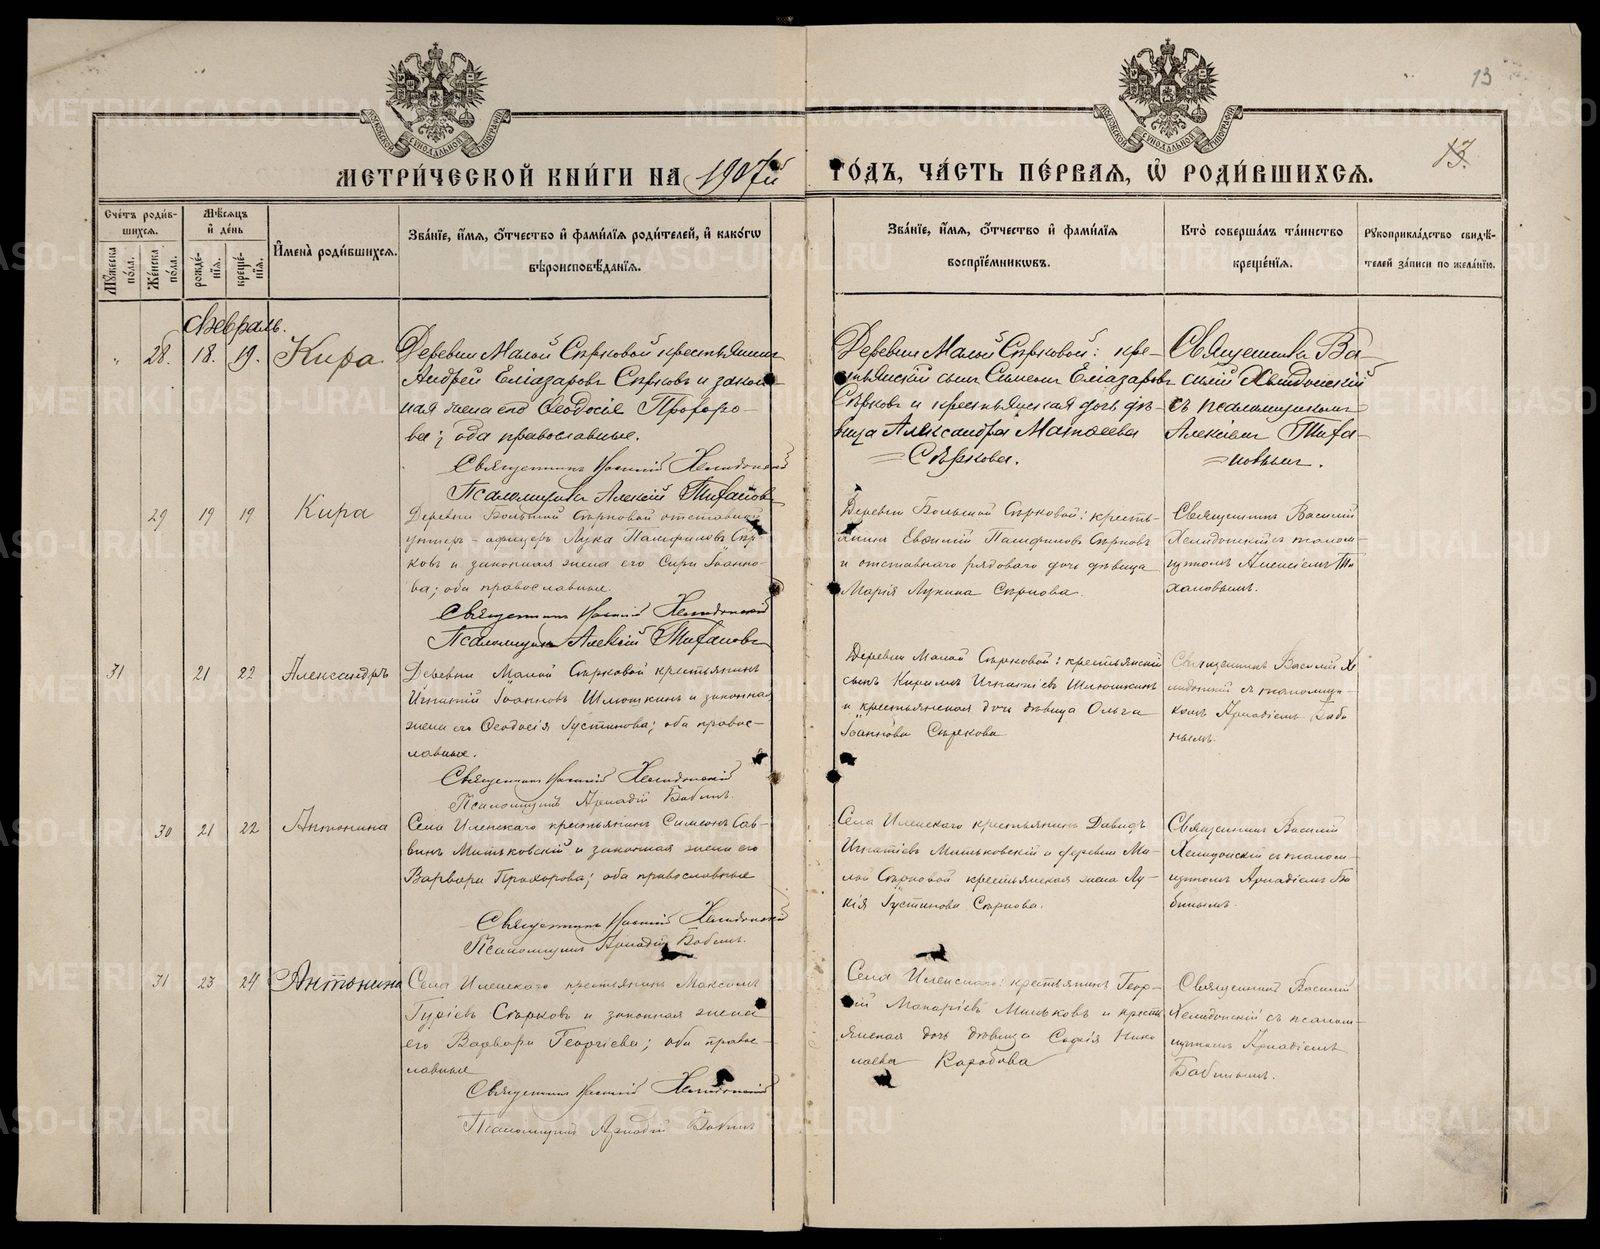 13
13.
МЕТРИ́ЧЕСКОЙ КНИ́ГИ НА 1907й ГО́ДЪ, ЧА́СТЬ ПЕ́РВАЯ, Ѡ҆ РОДИ́ВШИХСЯ.
Сче́тъ роди́в-
шихся.
Му́жеска по́ла.
Же́нска по́ла.
Мѣ́сяцъ
и҆ де́нь
рожде́-
нїя.
креще́-
нїя.
И҆мена̀ роди́вшихся.
Зва́нїе, и҆́мя, ѻ҆́тчество и҆ фами́лїя роди́телей, и҆ како́гѡ
вѣроисповѣ́данїя.
Зва́нїе, и҆́мя, ѻ҆́тчество и҆ фами́лїя
воспрїе́мникѡвъ.
Кто̀ соверша́лъ та́инство
креще́нїя.
Рꙋкоприкла́дство свидѣ́-
телей за́писи по жела́нїю.
Февраль.
28. 18. 19. Кира
Деревни Малой Сѣрковой крестьянинъ
Андрей Еліазаровъ Сѣрковъ и закон-
ная жена его Ѳеодосія Прохоро-
ва; оба православные.
Священникъ Василій Хелидонскій
Псаломщикъ Алексій Тихановъ
Деревни Малой Сѣрковой: кре-
стьянскій сынъ Симеонъ Еліазаровъ
Сѣрковъ и крестьянская дочь дѣ-
вица Александра Матѳеева
Сѣркова.
Священникъ Ва-
силій Хелидонскій
съ псаломщикомъ
Алексіемъ Тиха-
новымъ.
29 19 19 Кира
Деревни Большой Сѣрковой отставной
унтеръ-офицеръ Лука Памфиловъ Сѣр-
ковъ и законная жена его Сира Іоанно-
ва; оба православные.
Священникъ Василій Хелидонскій
Псаломщикъ Алексій Тихановъ
Деревни Большой Сѣрковой: кресть-
янинъ Евѳимій Памфиловъ Сѣрковъ
и отставнаго рядоваго дочь дѣвица
Марія Лукина Сѣркова.
Священникъ Василій
Хелидонскій съ псалом-
щикомъ Алексіемъ Ти-
хановымъ.
31 21 22 Александръ
Деревни Малой Сѣрковой крестьянинъ
Игнатій Іоанновъ Шлюшкинъ и законная
жена его Ѳеодосія Іустинова; оба право-
славные.
Священникъ Василій Хелидонскій
Псаломщикъ Аркадій Бабинъ.
Деревни Малой Сѣрковой: крестьянскій
сынъ Кирилъ Игнатіевъ Шлюшкинъ
и крестьянская дочь дѣвица Ольга
Іоаннова Сѣркова
Священникъ Василій Хе-
лидонскій съ псаломщи-
комъ Аркадіемъ Баби-
нымъ.
30 21 22 Антонина
Села Иленскаго крестьянинъ Симеонъ Сав-
винъ Митьковскій и законная жена его
Варвара Прохорова; оба православные
Священникъ Василій Хелидонскій
Псаломщикъ Аркадій Бабинъ.
Села Иленскаго крестьянинъ Давидъ
Игнатіевъ Митьковскій и деревни Ма-
лой Сѣрковой крестьянская жена Лу-
кія Іустинова Сѣркова.
Священникъ Василій
Хелидонскій съ псалом-
щикомъ Аркадіемъ Ба-
бинымъ.
31 23 24 Антонина
Села Иленскаго крестьянинъ Максимъ
Гуріевъ Сѣрковъ и законная жена
его Варвара Георгіева; оба право-
славные
Священникъ Василій Хелидонскій
Псаломщикъ Аркадій Бабинъ
Села Иленскаго: крестьянинъ Геор-
гій Макаріевъ Миньковъ и кресть-
янская дочь дѣвица Софія Нико-
лаева Коробова
Священникъ Василій
Хелидонскій съ псалом-
щикомъ Аркадіемъ
Бабинымъ.
METRIKI.GASO-URAL.RU